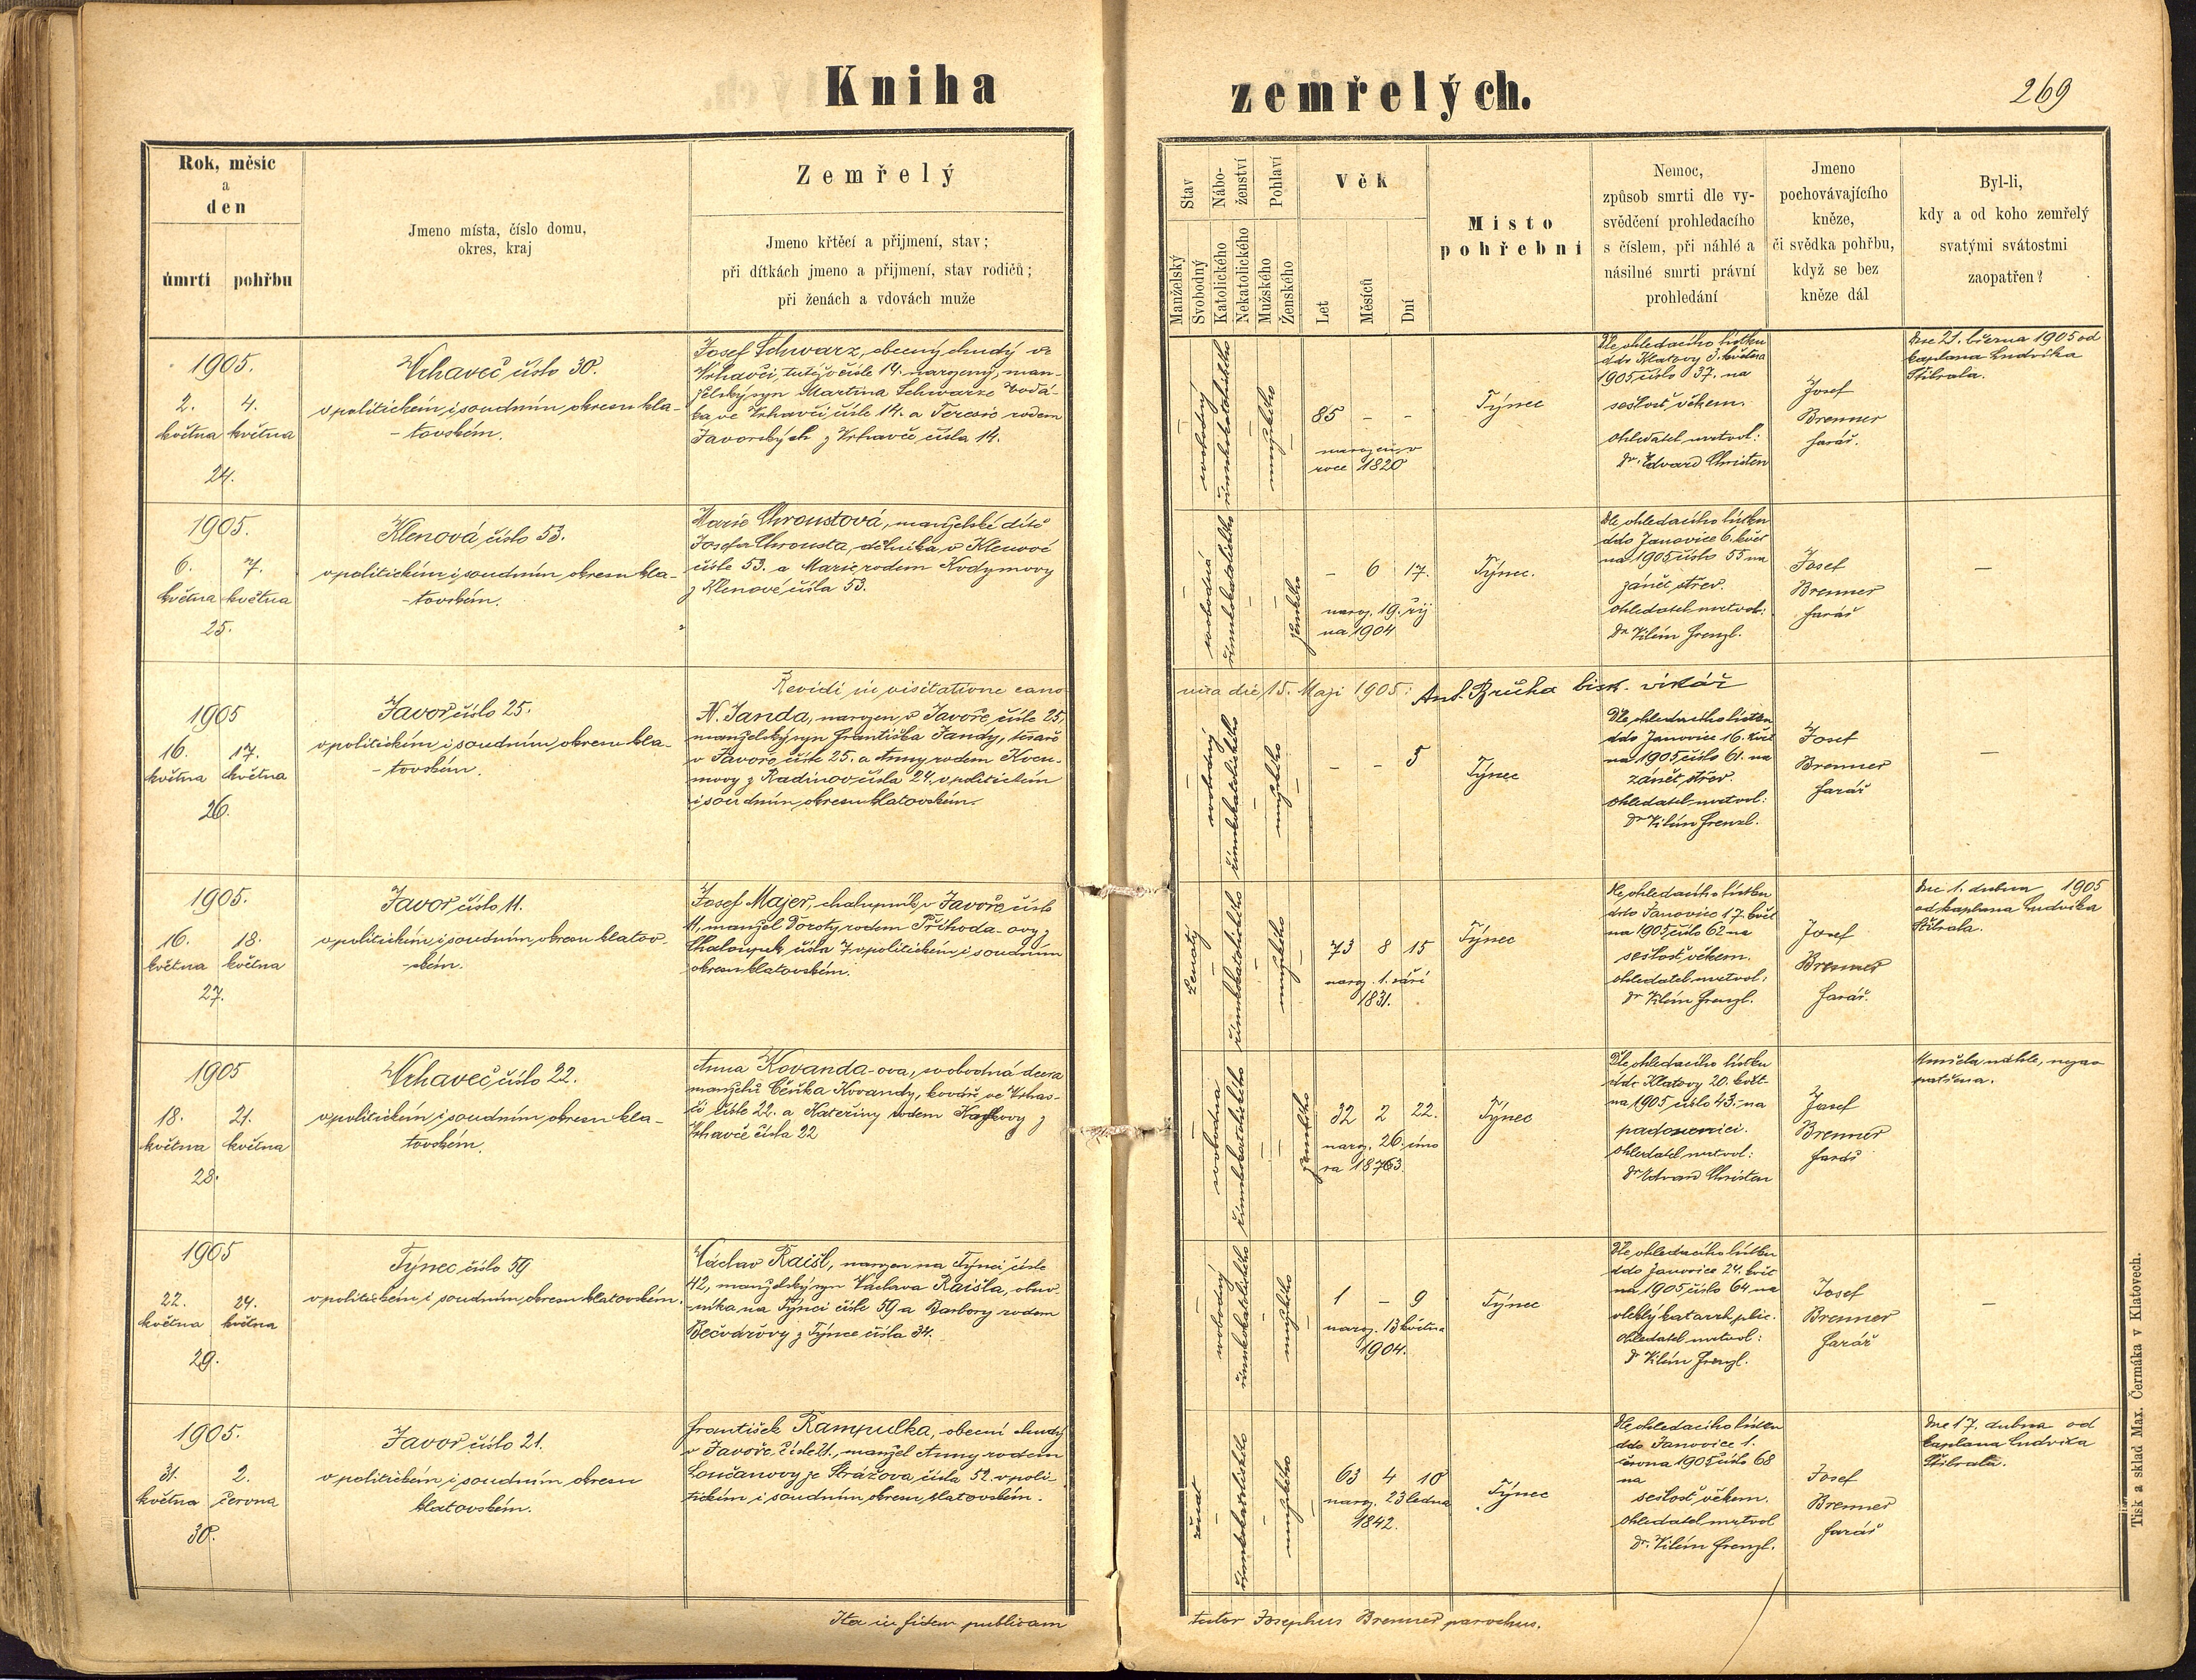 Kniha zemřelých.
269
Rok, měsíc
a
den
úmrtí pohřbu
Jmeno místa, číslo domu,
okres, kraj
Zemřelý
Jmeno křtěcí a přijmení, stav;
při dítkách jmeno a přijmení, stav rodičů;
při ženách a vdovách muže
Stav
Manželský
Svobodný
Nábo-
ženství
Katolického
Nekatolického
Pohlaví
Mužského
Ženského
Věk
Let
Měsíců
Dní
Místo
pohřebni
Nemoc,
způsob smrti dle vy-
svědčení prohledacího
s číslem, při náhlé a
násilné smrti právní
prohledání
Jmeno
pochovávajícího
kněze,
či svědka pohřbu,
když se bez
kněze dál
Byl-li,
kdy a od koho zemřelý
svatými svátostmi
zaopatřen?
1905.
2. 4.
května května
24.
Vrhaveč číslo 30.
v politickém i soudním okresu kla-
-tovském.
Josef Schwarz, obecný chudý ve
Vrhavči, tutéž v čísle 14. narozený, man-
želský syn Martina Schwarze
ve Vrhavči čísle 14. a Terezie rodem
Javorských z Vrhavče čísla 14.
svobodný
římskokatolického
mužského
85 - -
narozen v
roce 1820
Týnec
Dle ohledacího lístku
ddo Klatovy 3. května
1905 číslo 37. na
sešlost věkem.
ohledatel mrtvol:
Dr. Edvard Christen
Josef
Brenner
farář.
Dne 21. března 1905 od
kaplana Ludvíka
Stibrala.
1905.
6. 7.
května května
25.
Klenová číslo 53.
v politickém i soudním okresu kla-
-tovském.
Marie Chroustová, manželské dítě
Josefa Chrousta, dělníka v Klenové
čísle 53. a Marie rodem Kodymovy
z Klenové čísla 53.
svobodná
římskokatolického
ženského
- 6 17.
naroz. 19. říj
na 1904
Týnec.
Dle ohledacího lístku
ddo Janovice 6. květ
na 1905 číslo 55 na
zánět střev.
ohledatel mrtvol:
Dr. Vilém Frenzl.
Josef
Brenner
farář
-
Revidi in visitatione cano
nica die 15. Maji 1905: Ant. Brůha bisk. vikář
1905
16. 17.
května května
26.
Javoř číslo 25.
v politickém i soudním okresu kla-
-tovském.
N. Janda, narozen v Javoře čísle 25,
manželský syn Františka Jandy,
v Javoře čísle 25. a Anny rodem
z Radinov čísla 24. v politickém
i soudním okresu klatovském.
svobodný
římskokatolického
mužského
- - 5
Týnec
Dle ohledacího lístku
ddo Janovice 16. květ
na 1905 číslo 61. na
zánět střev.
ohledatel mrtvol:
Dr Vilém Frenzl.
Josef
Brenner
farář
-
1905.
16. 18.
května května
27.
Javoř číslo 11.
v politickém i soudním okresu klatov-
-ském.
Josef Majer, chalupník v Javoře číslo
11, manžel Doroty rodem Příhoda-ovy z
Chaloupek čísla 7 v politickém i soudním
okresu klatovském.
ženatý
římskokatolického
mužského
73 8 15
naroz. 1. září
1831.
Týnec
Dle ohledacího lístku
ddo Janovice 17. květ
na 1905 číslo 62 na
sešlost věkem.
ohledatel mrtvol:
Dr Vilém Frenzl.
Josef
Brenner
farář.
Dne 1. dubna 1905
od kaplana Ludvíka
Stibrala.
1905
18. 21.
května května
28.
Vrhaveč číslo 22.
v politickém i soudním okresu kla-
tovském.
Anna Kovanda-ova, svobodná dcera
manželů Čeňka Kovandy, kováře ve Vrhav-
či čísle 22. a Kateřiny rodem z
Vrhavče čísla 22
svobodna
římskokatolického
ženského
32 2 22.
naroz. 26. úno
ra 1873.
Týnec
Dle ohledacího lístku
ddo Klatovy 20. květ-
na 1905 číslo 43. na
padoucnici.
ohledatel mrtvol:
Dr Edvard Christen
Josef
Brenner
farář
Umřela náhle, nezao
patřena.
1905
22. 24.
května května
29.
Týnec číslo 59
v politickém i soudním okresu klatovském.
Václav Raišl, narozen na Týnci čísle
42, manželský syn Václava Raišla, obuv-
-níka na Týnci čísle 59 a Barbory rodem
Bečvářovy z Týnce čísla 34.
svobodný
římskokatolického
mužského
1 - 9
naroz. 13 května
1904.
Týnec
Dle ohledacího lístku
ddo Janovice 24. květ
na 1905 číslo 64 na
vleklý katarrh plic.
ohledatel mrtvol:
Dr Vilém Frenzl.
Josef
Brenner
farář
-
1905.
31. 2.
května června
30.
Javoř číslo 21.
v politickém i soudním okresu
klatovském.
František Rampulka, obecní chudý
v Javoře čísle 21., manžel Anny rodem
Loučanovy ze Strážova čísla 52. v poli-
tickém i soudním okresu klatovském.
ženat
římskokatolického
mužského
63 4 10
naroz. 23 ledna
1842.
Týnec
Dle ohledacího lístku
ddo Janovice 1.
června 1905 číslo 68
na
sešlost věkem.
ohledatel mrtvol
Dr. Vilém Frenzl.
Josef
Brenner
farář
Dne 17. dubna od
kaplana Ludvíka
Stibrala.
Ita in fidem publicam
tutor Josephus Brenner parochus.
Tisk a sklad Max. Čermáka v Klatovech.